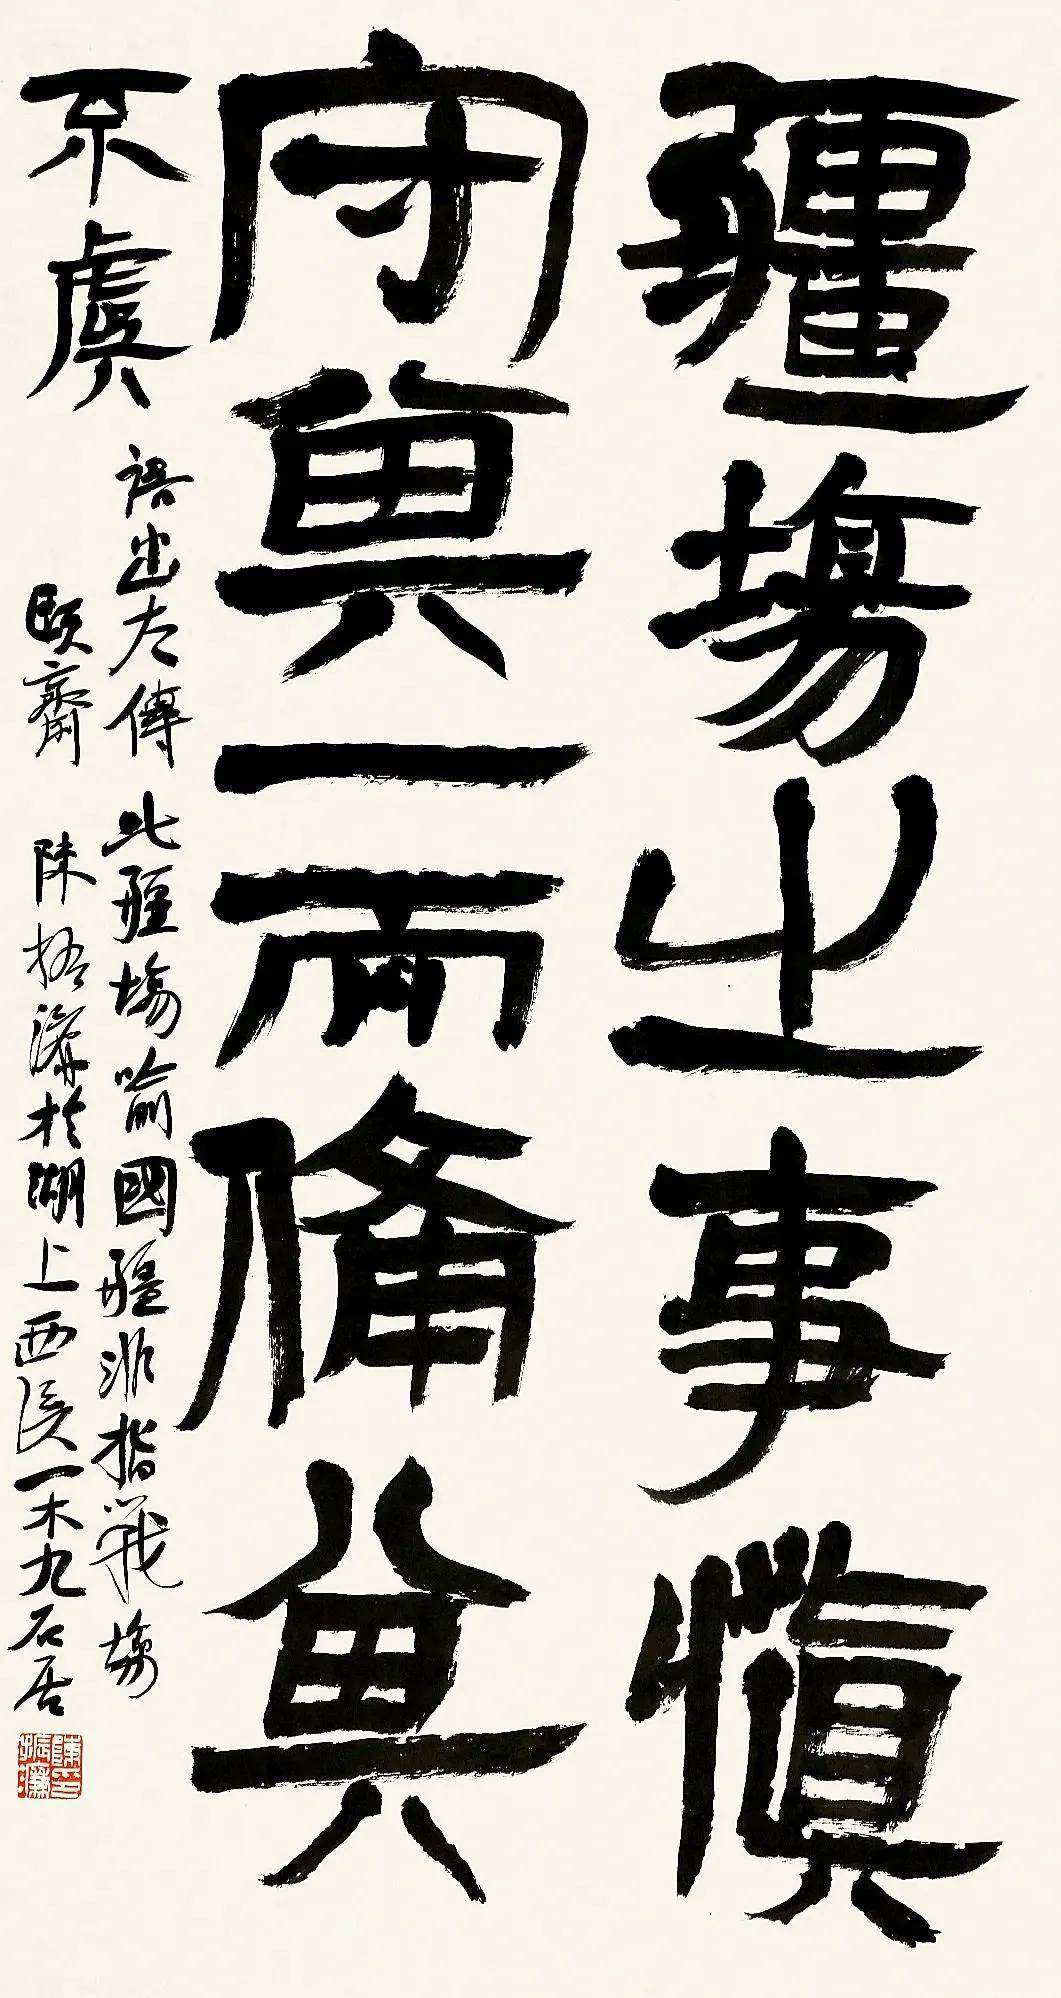 疆塲之事慎
守其一而備其
不虞
語出左傳 此疆塲喻國疆非指戰塲
頤齋 陳振濂於湖上西溪一木九石居
陳印振濂